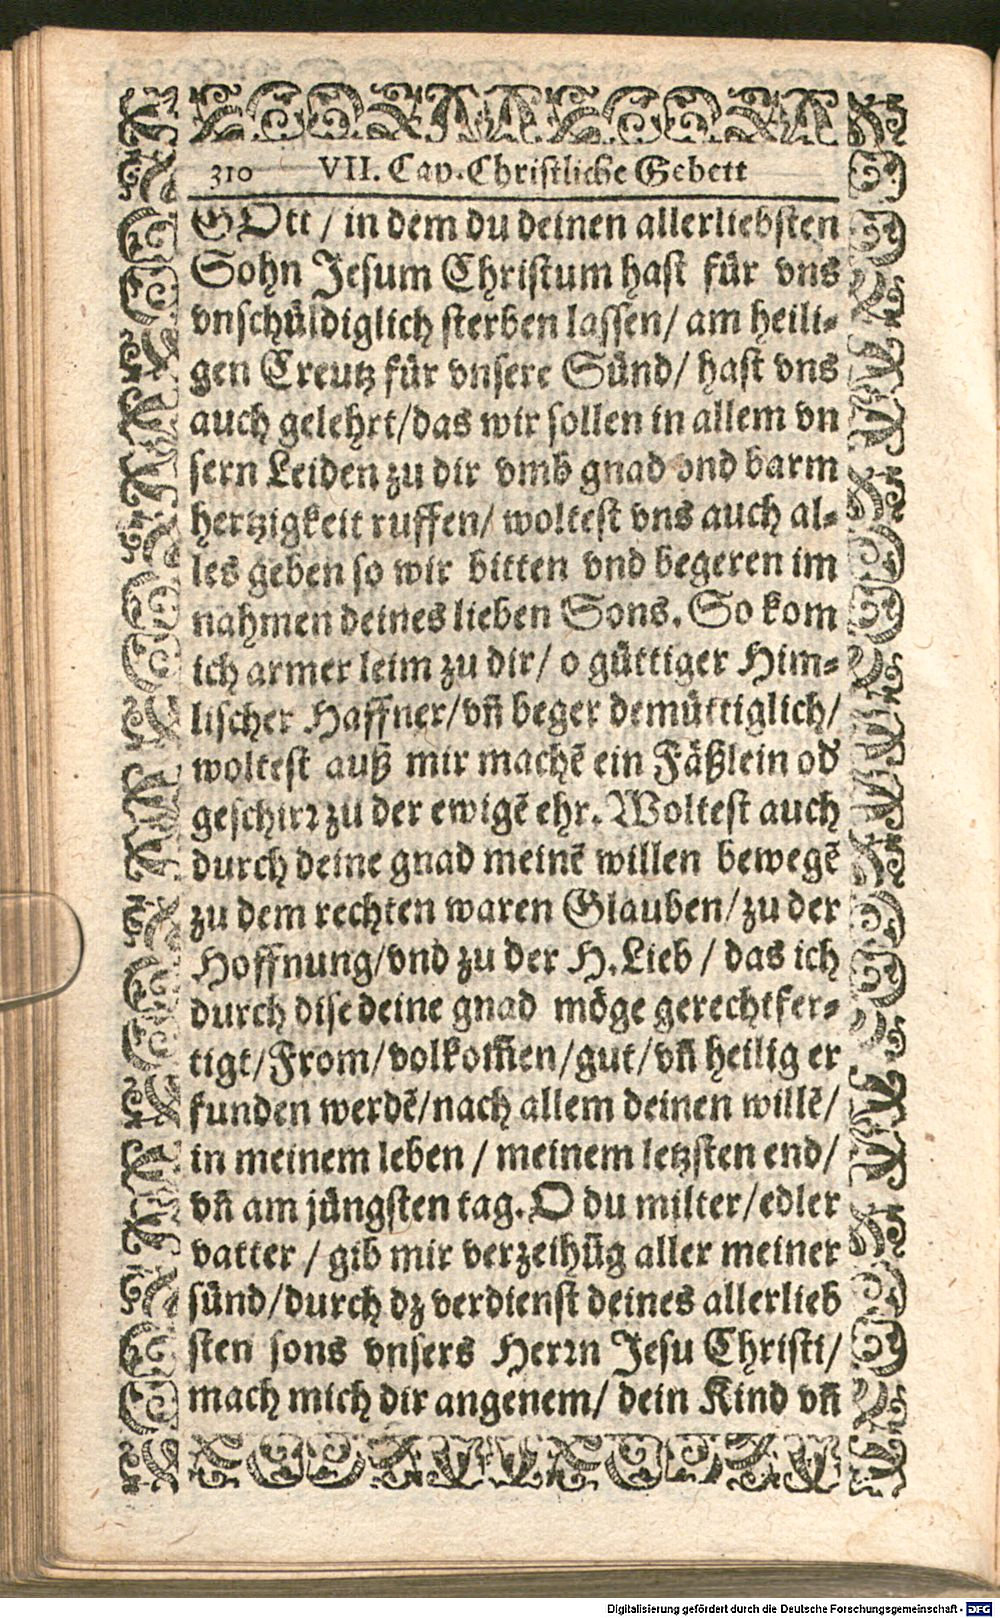 310 VII. Cap. Christliche Gebett
GOtt / in dem du deinen allerliebsten
Sohn Jesum Christum hast für vns
vnschüldiglich sterben lassen/ am heili-
gen Creutz für vnsere Sünd/ hast vns
auch gelehrt/das wir sollen in allem vn
sern Leiden zu dir vmb gnad vnd barm
hertzigkeit ruffen/ woltest vns auch al-
les geben so wir bitten vnd begeren im
nahmen deines lieben Sons. So kom
ich armer leim zu dir/ o güttiger Him-
lischer Haffner/vñ beger demüttiglich/
woltest auß mir machẽ ein Fäßlein od̉
geschirꝛ zu der ewigẽ ehr. Woltest auch
durch deine gnad meinẽ willen bewegẽ
zu dem rechten waren Glauben/zu der
Hoffnung/vnd zu der H. Lieb / das ich
durch dise deine gnad möge gerechtfer-
tigt/From/volkom̃en/gut/vñ heilig er
funden werdẽ/nach allem deinen willẽ/
in meinem leben / meinem letzsten end/
vñ am jüngsten tag. O du milter/edler
vatter / gib mir verzeihũg aller meiner
sünd/durch dz verdienst deines allerlieb
sten sons vnsers Herꝛn Jesu Christi/
mach mich dir angenem/ dein Kind vñ
Digitalisierung gefördert durch die Deutsche Forschungsgemeinschaft - DFG